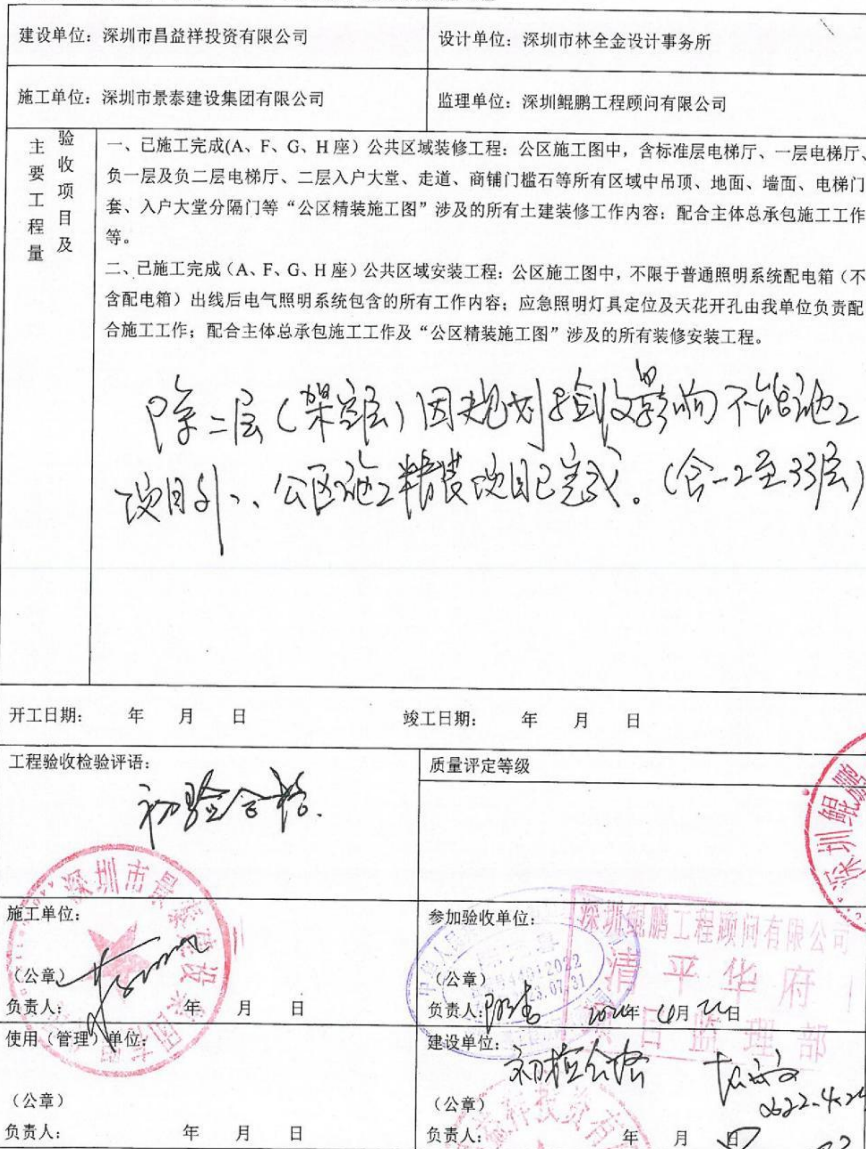 建设单位：深圳市昌益祥投资有限公司
设计单位：深圳市林全金设计事务所
施工单位：深圳市景泰建设集团有限公司
监理单位：深圳鲲鹏工程顾问有限公司
验收项目及
主要工程量
一、已施工完成(A、F、G、H座）公共区域装修工程：公区施工图中，含标准层电梯厅、一层电梯厅、
负一层及负二层电梯厅、二层入户大堂、走道、商铺门槛石等所有区域中吊顶、地面、墙面、电梯门
套、入户大堂分隔门等“公区精装施工图”涉及的所有土建装修工作内容；配合主体总承包施工工作
等。
二、已施工完成（A、F、G、H座）公共区域安装工程：公区施工图中，不限于普通照明系统配电箱（不
含配电箱）出线后电气照明系统包含的所有工作内容；应急照明灯具定位及天花开孔由我单位负责配
合施工工作；配合主体总承包施工工作及“公区精装施工图”涉及的所有装修安装工程。
除二层（架空层）因规划验收影响不能施工
项目外、公区施工精装项目已完成。（含-2至33层）
开工日期： 年 月 日
竣工日期： 年 月 日
工程验收检验评语：
质量评定等级
初验合格.
深圳鲲鹏
深圳市景泰建设集团
施工单位：
（公章）
负责人： 年 月 日
参加验收单位：
深圳鲲鹏工程顾问有限公司
清平华府
项目监理部
（公章）
负责人： 年 4月 22日
使用（管理）单位：
（公章）
负责人： 年 月 日
建设单位：
初检合格
2022.4.24
（公章）
负责人： 年 月 日
祥投资有